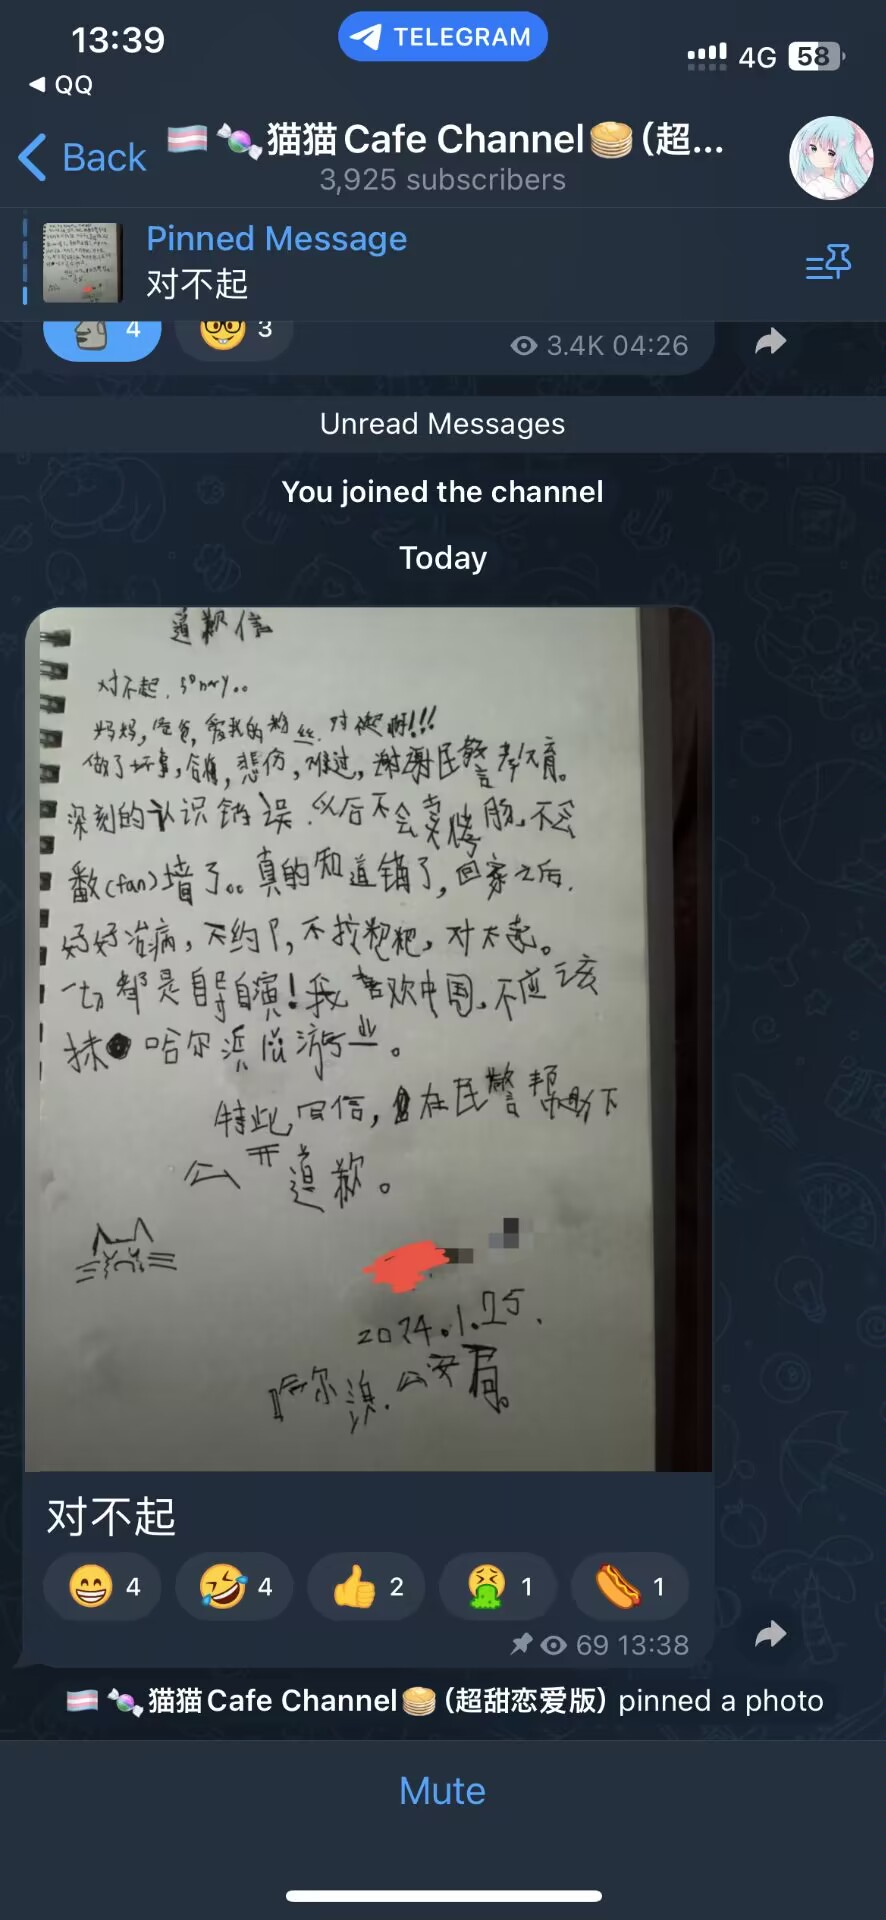 13:39
TELEGRAM
4G
58
QQ
Back
猫猫Cafe Channel (超...
3,925 subscribers
Pinned Message
对不起
4
3
3.4K 04:26
Unread Messages
You joined the channel
Today
道歉信
对不起, sorry..
妈妈,爸爸,爱我的粉丝.对不起啊!!!
做了坏事,合痛,悲伤,难过,谢谢民警教育。
深刻的认识错误.以后不会卖烤肠,不会
翻(fan)墙了。。真的知道错了,回家之后.
好好治病,不约P,不找粑粑,对不起。
一切都是自导自演!我喜欢中国,不应该
抹 哈尔滨旅游业。
特此写信,在民警帮助下
公开道歉。
2024.1.25.
哈尔滨.公安局。
对不起
4
4
2
1
1
69 13:38
猫猫Cafe Channel (超甜恋爱版) pinned a photo
Mute